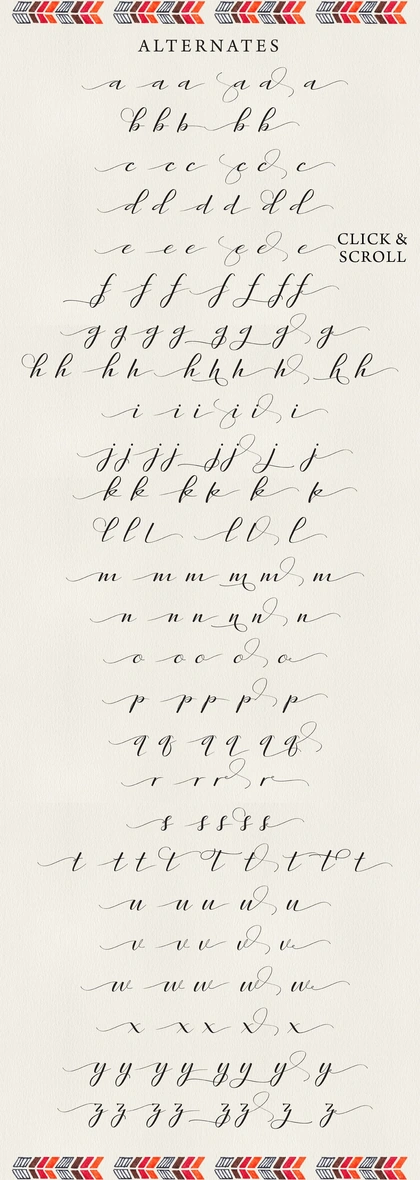 ALTERNATES
a a a a a a
b b b b b
c c c c c c
d d d d d d
e e e e e e
CLICK &
SCROLL
f f f f f f f
g g g g g g g g
h h h h h h h h h h
i i i i i i
j j j j j j j j
k k k k k k
l l l l l l
m m m m m m
n n n n n n
o o o o o
p p p p p
q q q q q q
r r r r
s s s s s
t t t t t t t t t
u u u u u
v v v v v
w w w w w
x x x x x
y y y y y y y y
z z z z z z z z